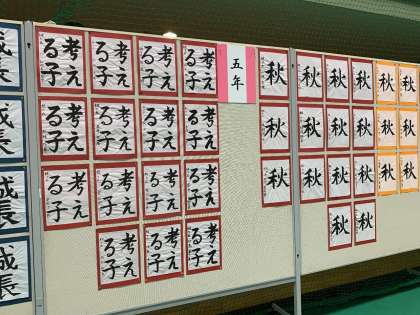 成長
成長
成長
成長
考え
る子
考え
る子
考え
る子
考え
る子
考え
る子
考え
る子
考え
る子
考え
る子
考え
る子
考え
る子
考え
る子
考え
る子
考え
る子
考え
る子
考え
る子
五年
秋
秋
秋
秋
秋
秋
秋
秋
秋
秋
秋
秋
秋
秋
秋
秋
秋
秋
秋
秋